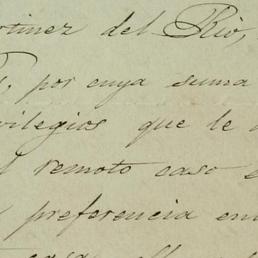 rtinez del Rio,
por cuya suma
vilegios que le
remoto caso
preferencia en